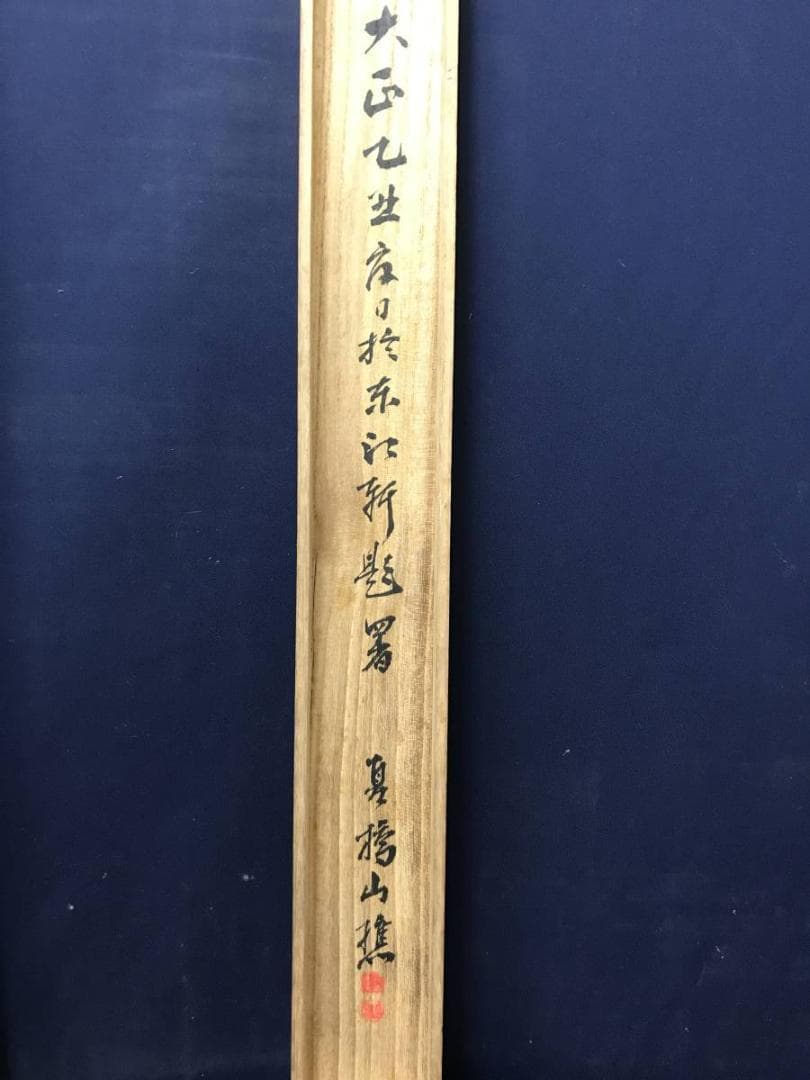 大正乙丑夏日於東江軒題署 直携山樵